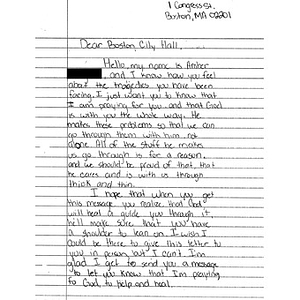 1 Congress St.
Boston, MA 02201
Dear Boston City Hall,
Hello, my name is Amber
, and I know how you feel
about the tragedies you have been
facing. I just want you to know that
I am praying for you and that God
is with you the whole way. He
makes these problems so that we can
go through them with him not
alone. All of the stuff he makes
us go through is for a reason,
and we should be proud of that, that
he cares and is with us through
thick and thin.
I hope that when you get
this message you realize that God
will heal & guide you through it,
he'll make sure that you have
a shoulder to lean on. I wish I
could be there to give this letter to
you in person, but I can't. I'm
glad I get to send you a message
to let you know that I'm praying
to God, to help and heal.